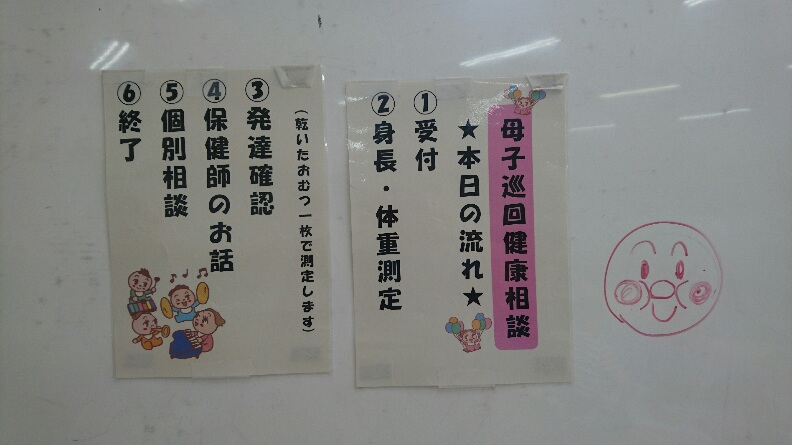 母子巡回健康相談
★本日の流れ★
①受付
②身長・体重測定
（乾いたおむつ一枚で測定します）
③発達確認
④保健師のお話
⑤個別相談
⑥終了